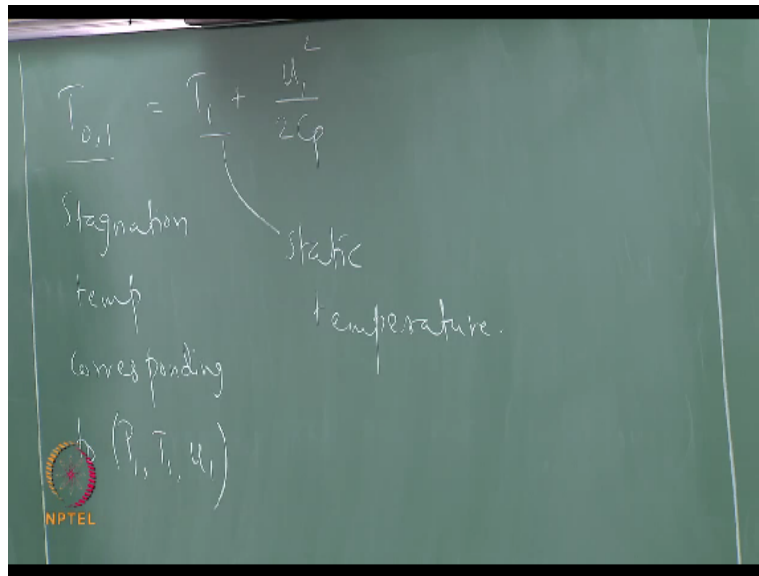 T₀,₁ = T₁ + u₁² / 2Cp
Stagnation
temp
corresponding
to (P₁, T₁, u₁)
static
temperature.
NPTEL